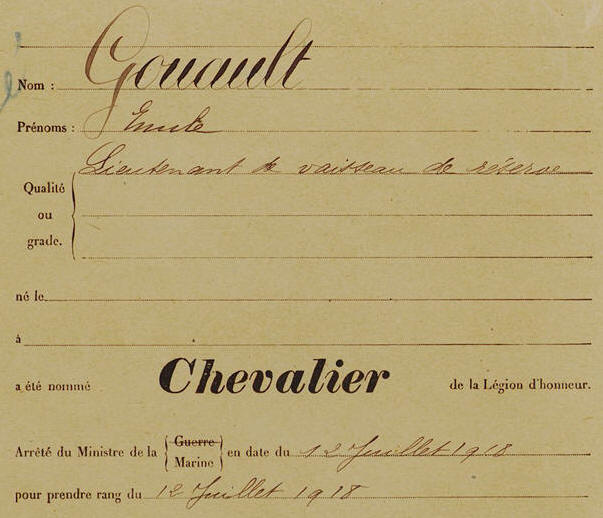 Nom : Gouault
Prénoms : Emile
Lieutenant de vaisseau de réserve
Qualité
ou
grade.
né le
à
a été nommé Chevalier de la Légion d'honneur.
Arrêté du Ministre de la Guerre Marine en date du 12 Juillet 1918
pour prendre rang du 12 Juillet 1918